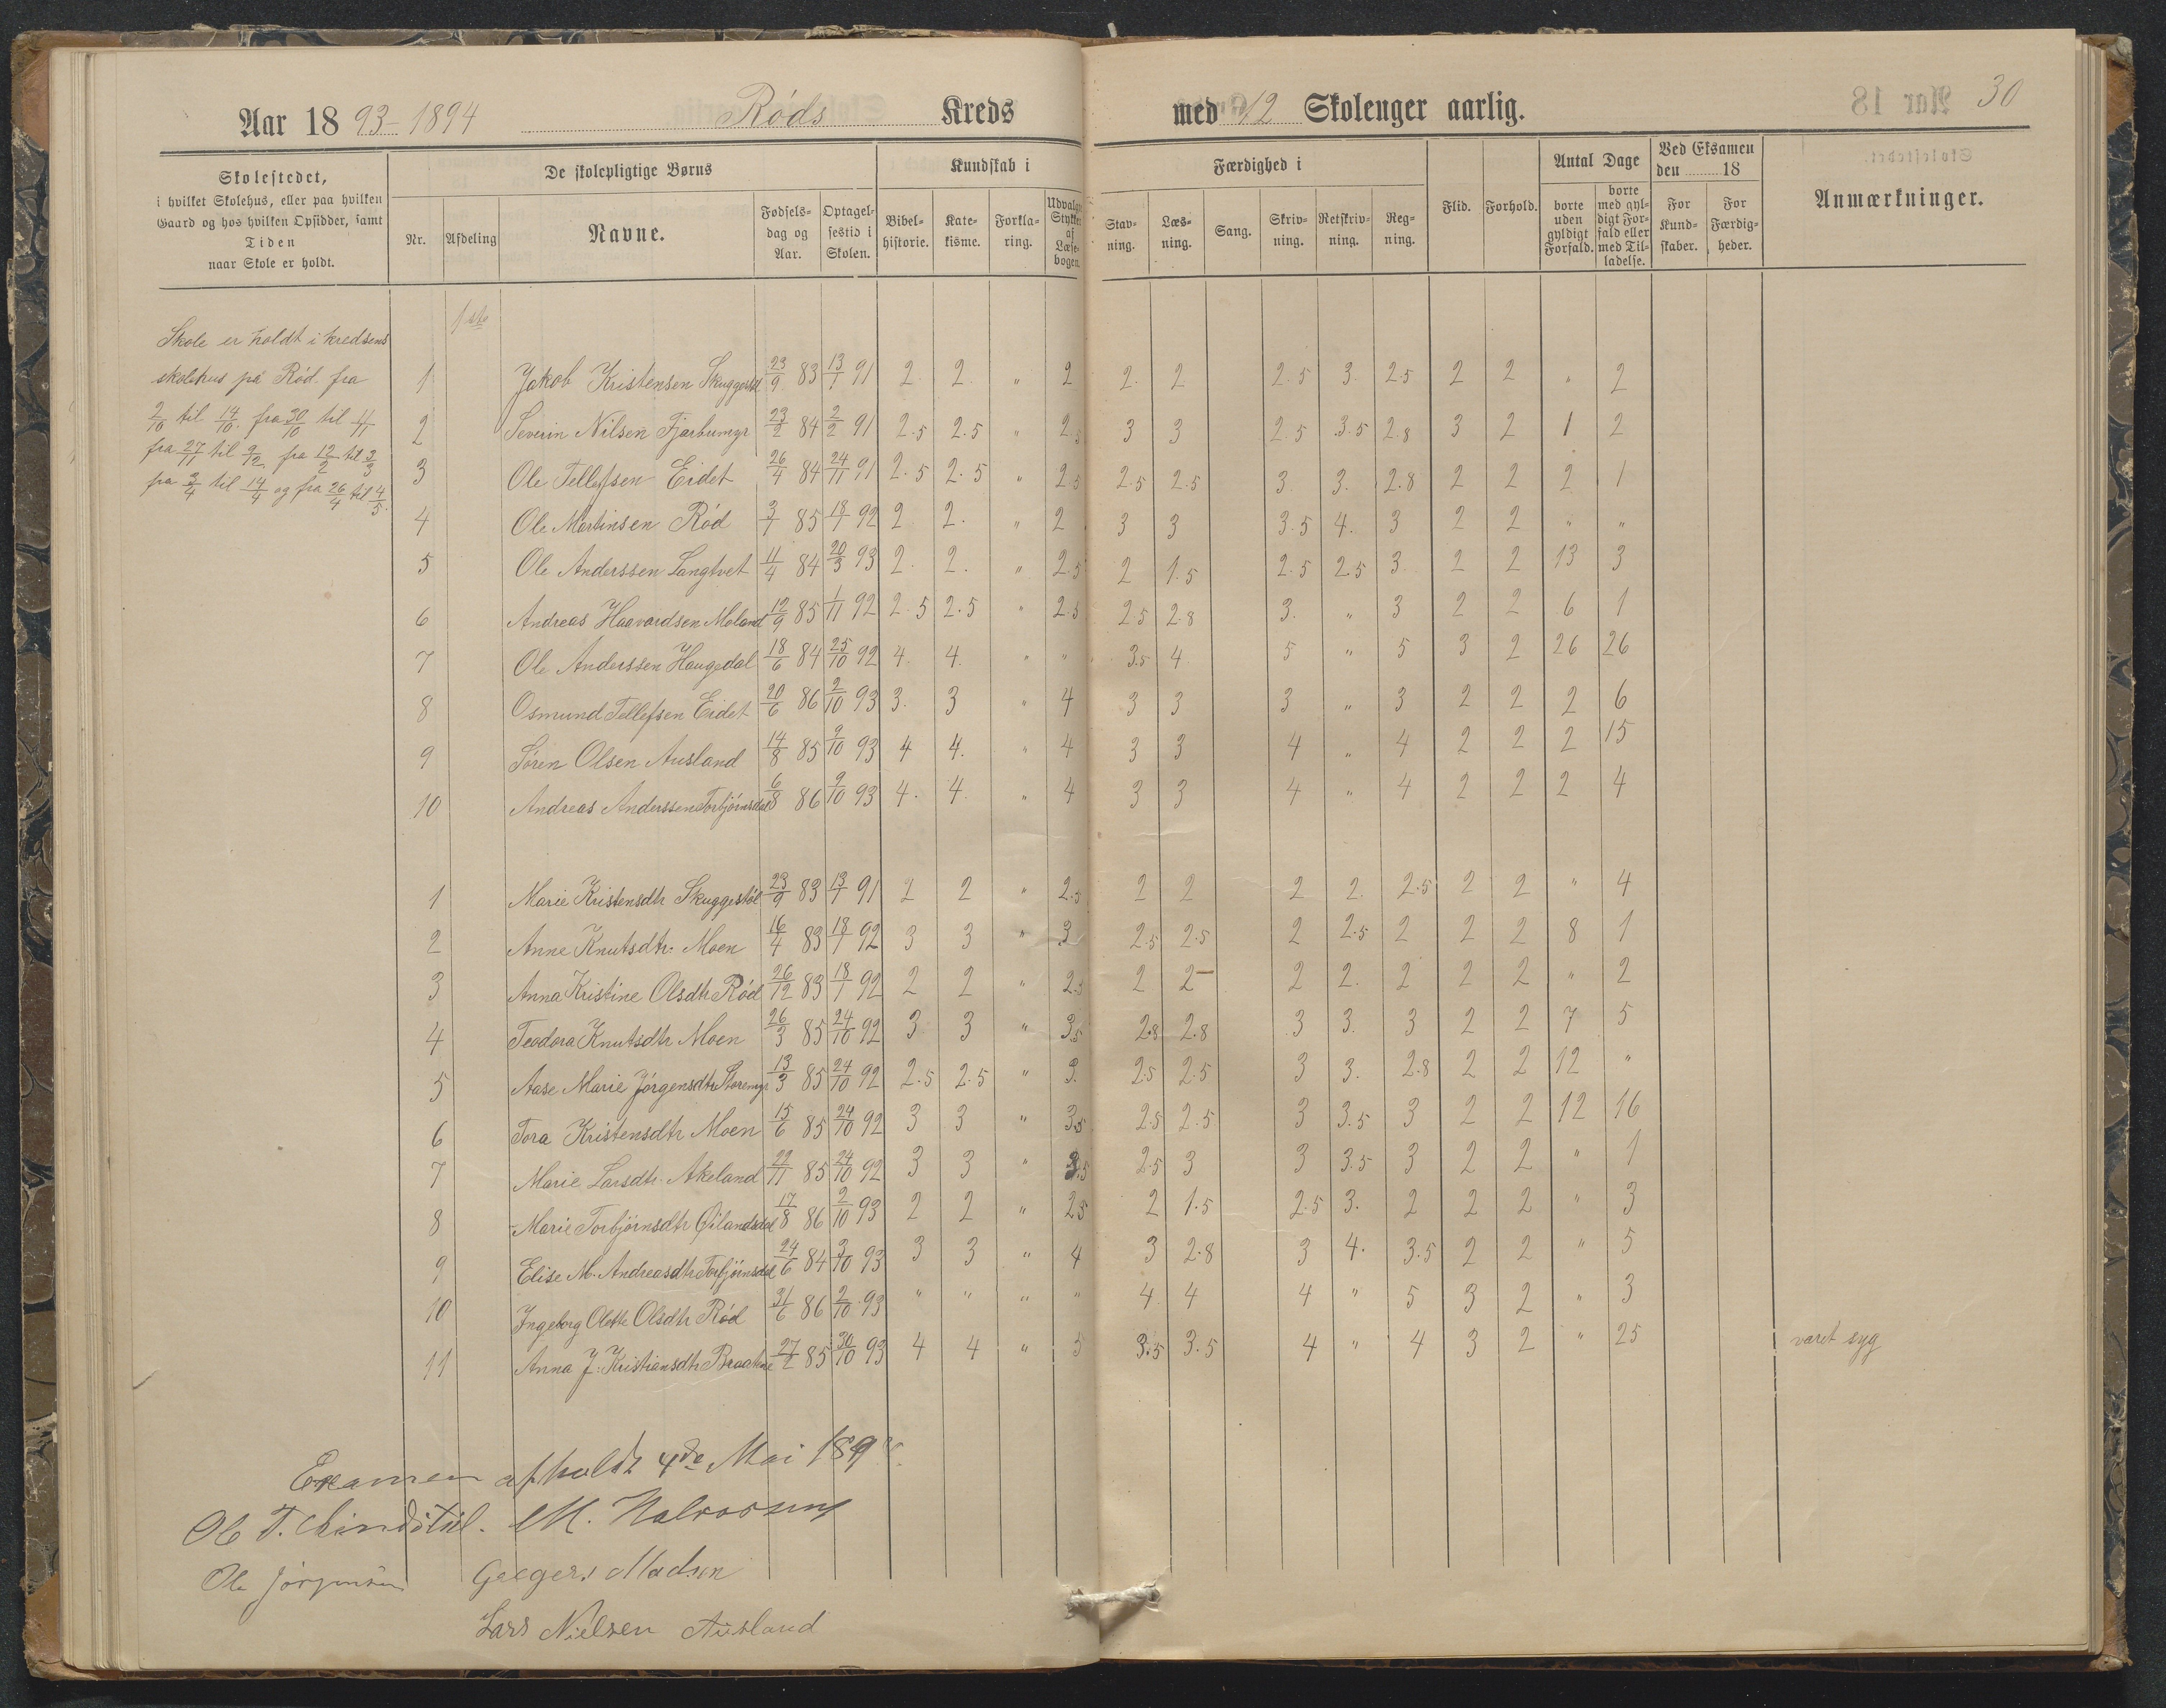 30
Aar 1893-1894 Röds Kreds med 12 Skolenger aarlig.
Skolestedet,
i hvilket Skolehus, eller paa hvilken
Gaard og hos hvilken Opsidder, samt
Tiden
naar Skole er holdt.
De skolepligtige Børns
Nr. Afdeling Navne. Fødselsdag og Aar. Optagelsestid i Skolen.
Kundskab i
Bibelhistorie. Katekisme. Forklaring. Udvalgte Stykker af Læsebogen.
Færdighed i
Stavning. Læsning. Sang. Skrivning. Retskrivning. Regning.
Flid. Forhold.
Antal Dage
borte uden gyldigt Forfald. borte med gyldigt Forfald eller med Tilladelse.
Ved Eksamen
den 18
For Kundskaber. For Færdigheder.
Anmærkninger.
1ste
Skole er holdt i kredsens
skolehus på Röd fra
2/10 til 14/10. fra 30/10 til 11/11
fra 27/11 til 9/12. fra 12/2 til 3/3
fra 2/4 til 14/4 og fra 26/4 til 4/5.
1 Jakob Kristensen Skuggestöl 23/9 83 13/1 91 2. 2. " 2 2. 2 2.5 3. 2.5 2 2 " 2
2 Severin Nilsen Fjarbumyr 23/2 84 2/2 91 2.5 2.5 " 2.5 3 3 2.5 3.5 2.8 3 2 1 2
3 Ole Tellefsen Eidet 26/4 84 24/11 91 2.5 2.5 " 2.5 2.5 2.5 3. 3. 2.8 2 2 2 1
4 Ole Martinsen Röd 3/1 85 18/1 92 2 2. " 2 3 3 3.5 4. 3 2 2 " "
5 Ole Anderssen Langtvet 11/4 84 20/3 93 2. 2. " 2.5 2 1.5 2.5 2.5 3. 2 2 13 3
6 Andreas Haavardsen Moland 12/9 85 1/11 92 2.5 2.5 " 2.5 2.5 2.8 3. " 3 2 2 6 1
7 Ole Anderssen Haugedal 18/6 84 25/10 92 4. 4. " " 3.5 4 5 " 5 3 2 26 26
8 Osmund Tellefsen Eidet 20/6 86 2/10 93 3. 3 " 4 3 3 3 " 3 2 2 2 6
9 Sören Olsen Ausland 14/8 85 9/10 93 4 4. " 4 3 3 4 " 4 2 2 2 15
10 Andreas Anderssen Torbjörnsdal 6/8 86 9/10 93 4. 4. " 4 3 3 4 " 4 2 2 2 4
1 Marie Kristensdtr Skuggestöl 23/9 83 13/1 91 2 2 " 2.5 2 2 2 2. 2.5 2 2 " 4
2 Anne Knutsdtr. Moen 16/4 83 18/1 92 3 3 " 3 2.5 2.5 2 2.5 2 2 2 8 1
3 Anna Kristine Olsdtr Röd 26/12 83 18/1 92 2 2 " 2.5 2 2 2 2. 2 2 2 " 2
4 Teodora Knutsdtr Moen 26/3 85 24/10 92 3 3 " 3.5 2.8 2.8 3 3. 3 2 2 7 5
5 Aase Marie Jörgensdtr Storemyr 13/3 85 24/10 92 2.5 2.5 " 3. 2.5 2.5 3 3. 2.8 2 2 12 "
6 Tora Kristensdtr Moen 15/6 85 24/10 92 3 3 " 3.5 2.5 2.5 3 3.5 3 2 2 12 16
7 Marie Larsdtr. Akeland 22/11 85 24/10 92 3 3 " 3.5 2.5 3 3 3.5 3 2 2 " 1
8 Marie Torbjörnsdtr Öilandsdal 17/8 86 2/10 93 2 2 " 2.5 2 1.5 2.5 3. 2 2 2 " 3
9 Elise M. Andreasdtr Torbjörnsdal 24/6 84 3/10 93 3 3 " 4 3 2.8 3 4. 3.5 2 2 " 5
10 Ingeborg Olette Olsdtr Röd 31/6 86 2/10 93 " " " " 4 4 4 " 5 3 2 " 3
11 Anna J. Kristiansdtr Braatene 27/2 85 30/10 93 4 4 " 5 3.5 3.5 4 " 4 3 2 " 25 været syg
Examen afholdt 4de Mai 189
Ole T. Lindstöl. M. Halvorsen
Ole Jörgensen Geegers Madsen
Lars Nielsen Ausland